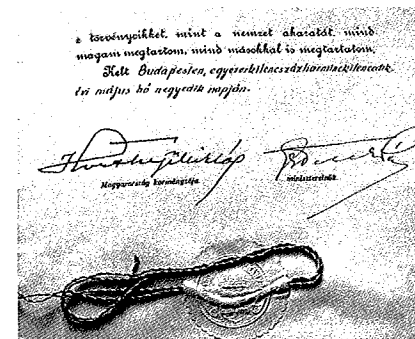 e törvénycikket, mint a nemzet akaratát, mind
magam megtartom, mind másokkal is megtartatom.
Kelt Budapesten, egyezerkilencszázharminckilencedik
évi május hó negyedik napján.
Horthy Miklós
Magyarország kormányzója.
miniszterelnök.